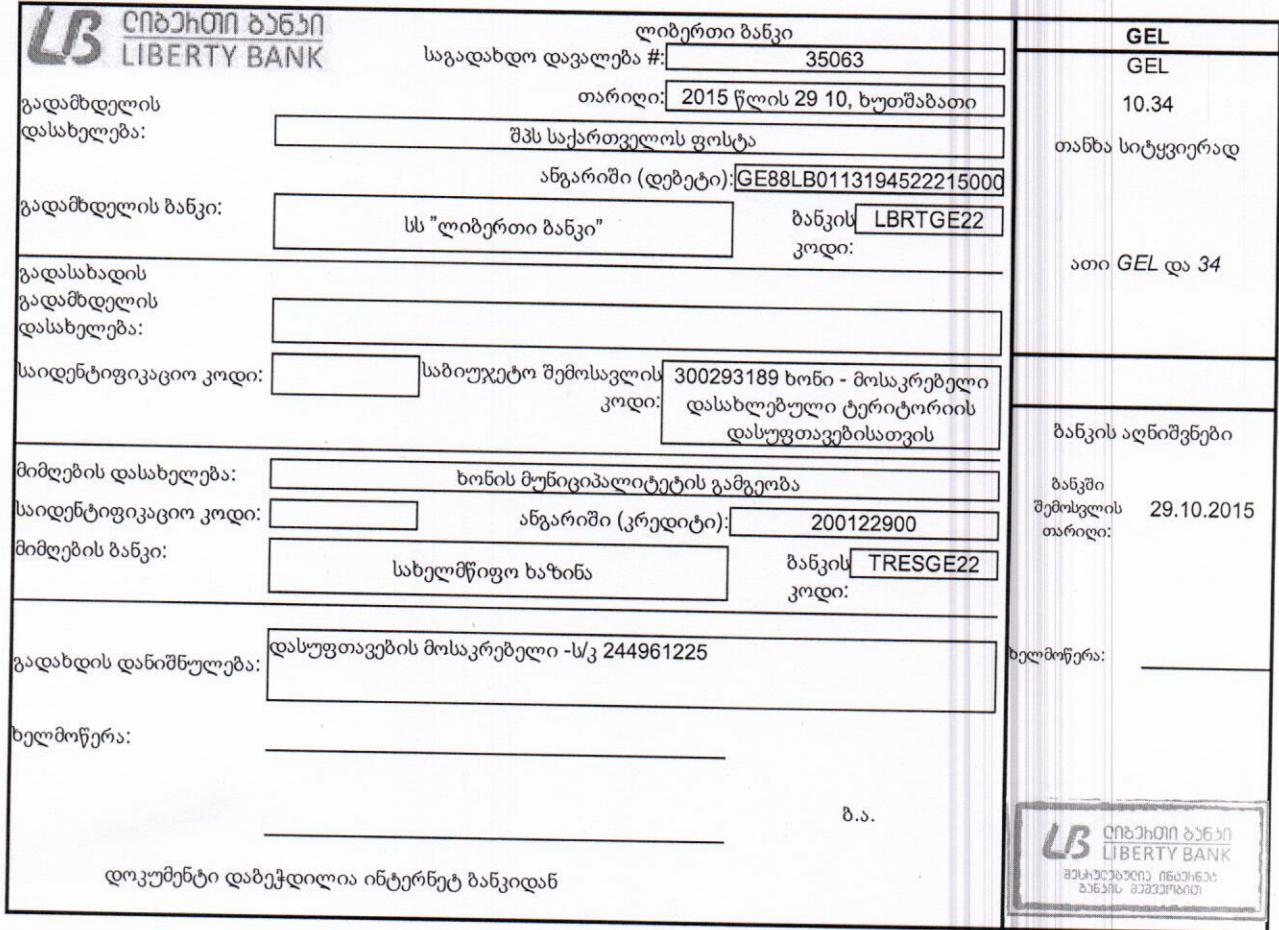 ლიბერთი ბანკი
LIBERTY BANK
ლიბერთი ბანკი
საგადახდო დავალება #: 35063
თარიღი: 2015 წლის 29 10, ხუთშაბათი
გადამხდელის
დასახელება: შპს საქართველოს ფოსტა
ანგარიში (დებეტი): GE88LB0113194522215000
გადამხდელის ბანკი: სს "ლიბერთი ბანკი" ბანკის LBRTGE22
კოდი:
გადასახადის
გადამხდელის
დასახელება:
საიდენტიფიკაციო კოდი: საბიუჯეტო შემოსავლის 300293189 ხონი - მოსაკრებელი
კოდი: დასახლებული ტერიტორიის
დასუფთავებისათვის
მიმღების დასახელება: ხონის მუნიციპალიტეტის გამგეობა
საიდენტიფიკაციო კოდი: ანგარიში (კრედიტი): 200122900
მიმღების ბანკი: სახელმწიფო ხაზინა ბანკის TRESGE22
კოდი:
გადახდის დანიშნულება: დასუფთავების მოსაკრებელი -ს/კ 244961225
ხელმოწერა:
ბ.ა.
დოკუმენტი დაბეჭდილია ინტერნეტ ბანკიდან
GEL
GEL
10.34
თანხა სიტყვიერად
ათი GEL და 34
ბანკის აღნიშვნები
ბანკში
შემოსვლის 29.10.2015
თარიღი:
ხელმოწერა:
LB ლიბერთი ბანკი
LIBERTY BANK
შესრულებულია ინტერნეტ
ბანკის მეშვეობით